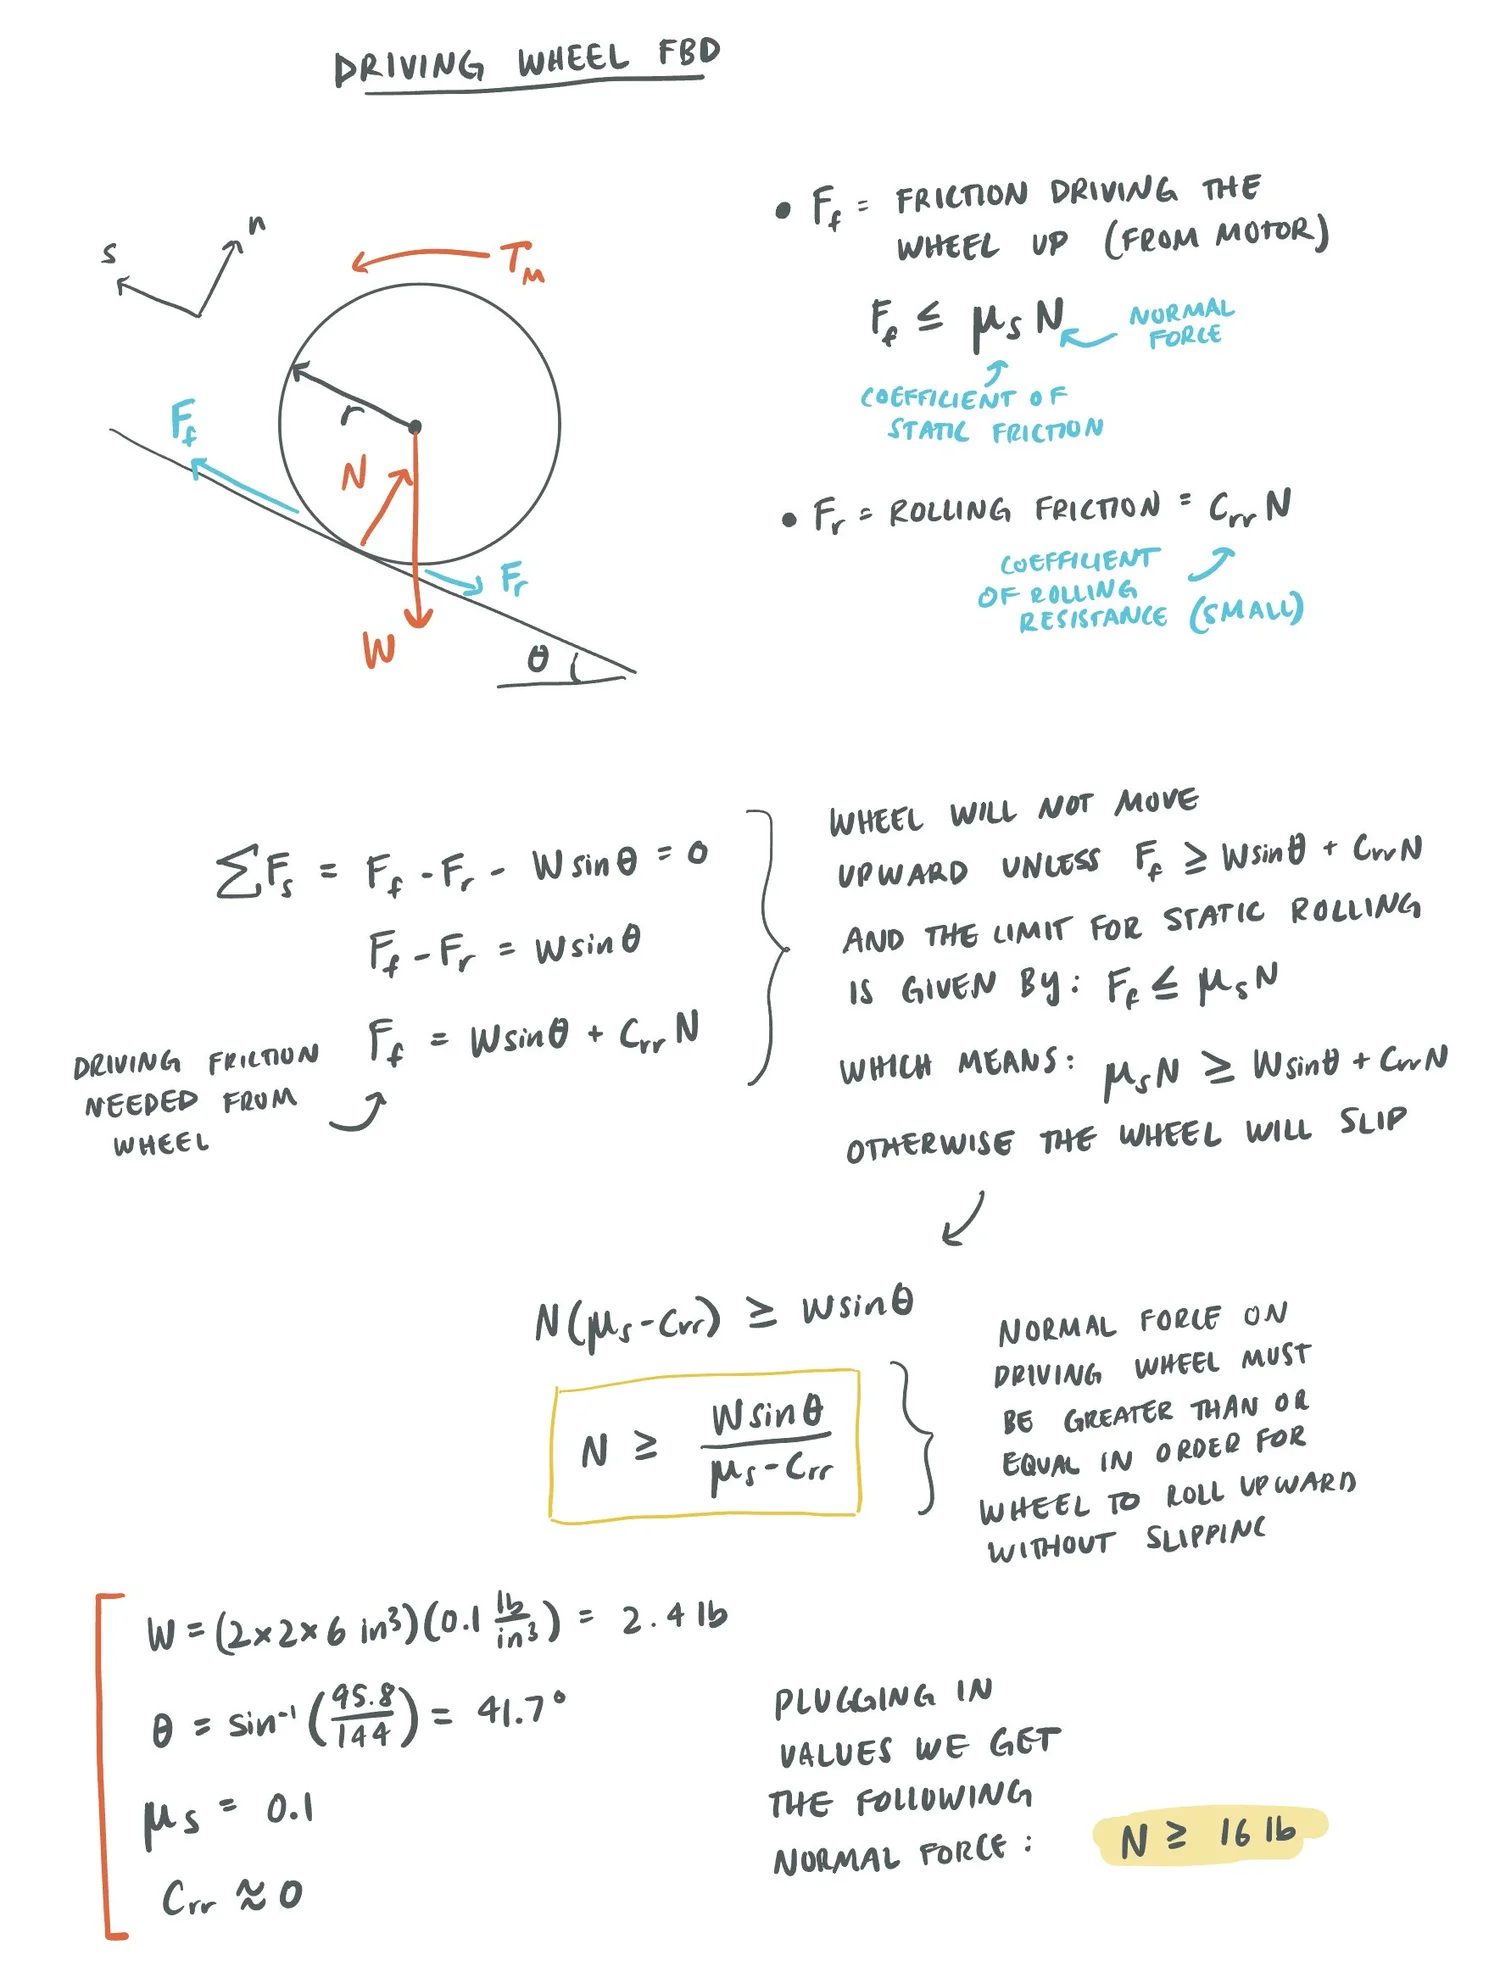 DRIVING WHEEL FBD
n
s
T_M
r
F_f
N
F_r
W
θ
• F_f = FRICTION DRIVING THE
WHEEL UP (FROM MOTOR)
F_f ≤ μ_s N
NORMAL
FORCE
COEFFICIENT OF
STATIC FRICTION
• F_r = ROLLING FRICTION = C_rr N
COEFFICIENT
OF ROLLING
RESISTANCE (SMALL)
ΣF_s = F_f - F_r - W sin θ = 0
F_f - F_r = W sin θ
F_f = W sin θ + C_rr N
DRIVING FRICTION
NEEDED FROM
WHEEL
WHEEL WILL NOT MOVE
UPWARD UNLESS F_f ≥ W sin θ + C_rr N
AND THE LIMIT FOR STATIC ROLLING
IS GIVEN BY: F_f ≤ μ_s N
WHICH MEANS: μ_s N ≥ W sin θ + C_rr N
OTHERWISE THE WHEEL WILL SLIP
N(μ_s - C_rr) ≥ W sin θ
N ≥ W sin θ / μ_s - C_rr
NORMAL FORCE ON
DRIVING WHEEL MUST
BE GREATER THAN OR
EQUAL IN ORDER FOR
WHEEL TO ROLL UPWARD
WITHOUT SLIPPING
W = (2×2×6 in³)(0.1 lb/in³) = 2.4 lb
θ = sin⁻¹(95.8/144) = 41.7°
μ_s = 0.1
C_rr ≈ 0
PLUGGING IN
VALUES WE GET
THE FOLLOWING
NORMAL FORCE:
N ≥ 16 lb